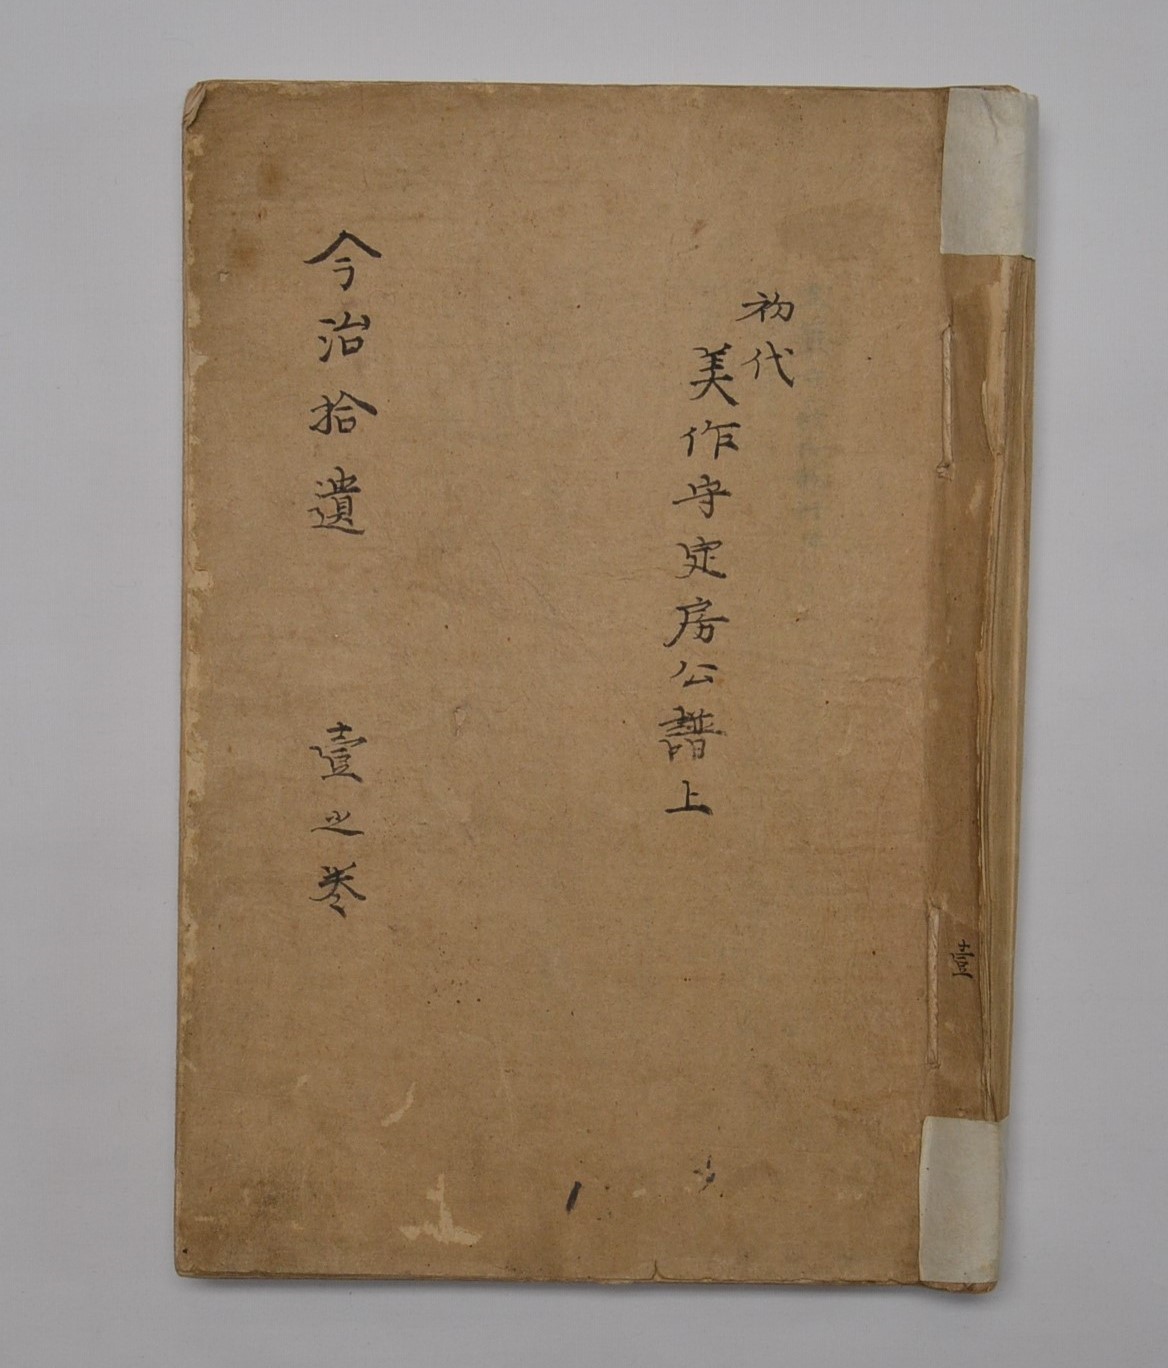 壹
初代
美作守定房公譜上
今治拾遺　壹之巻